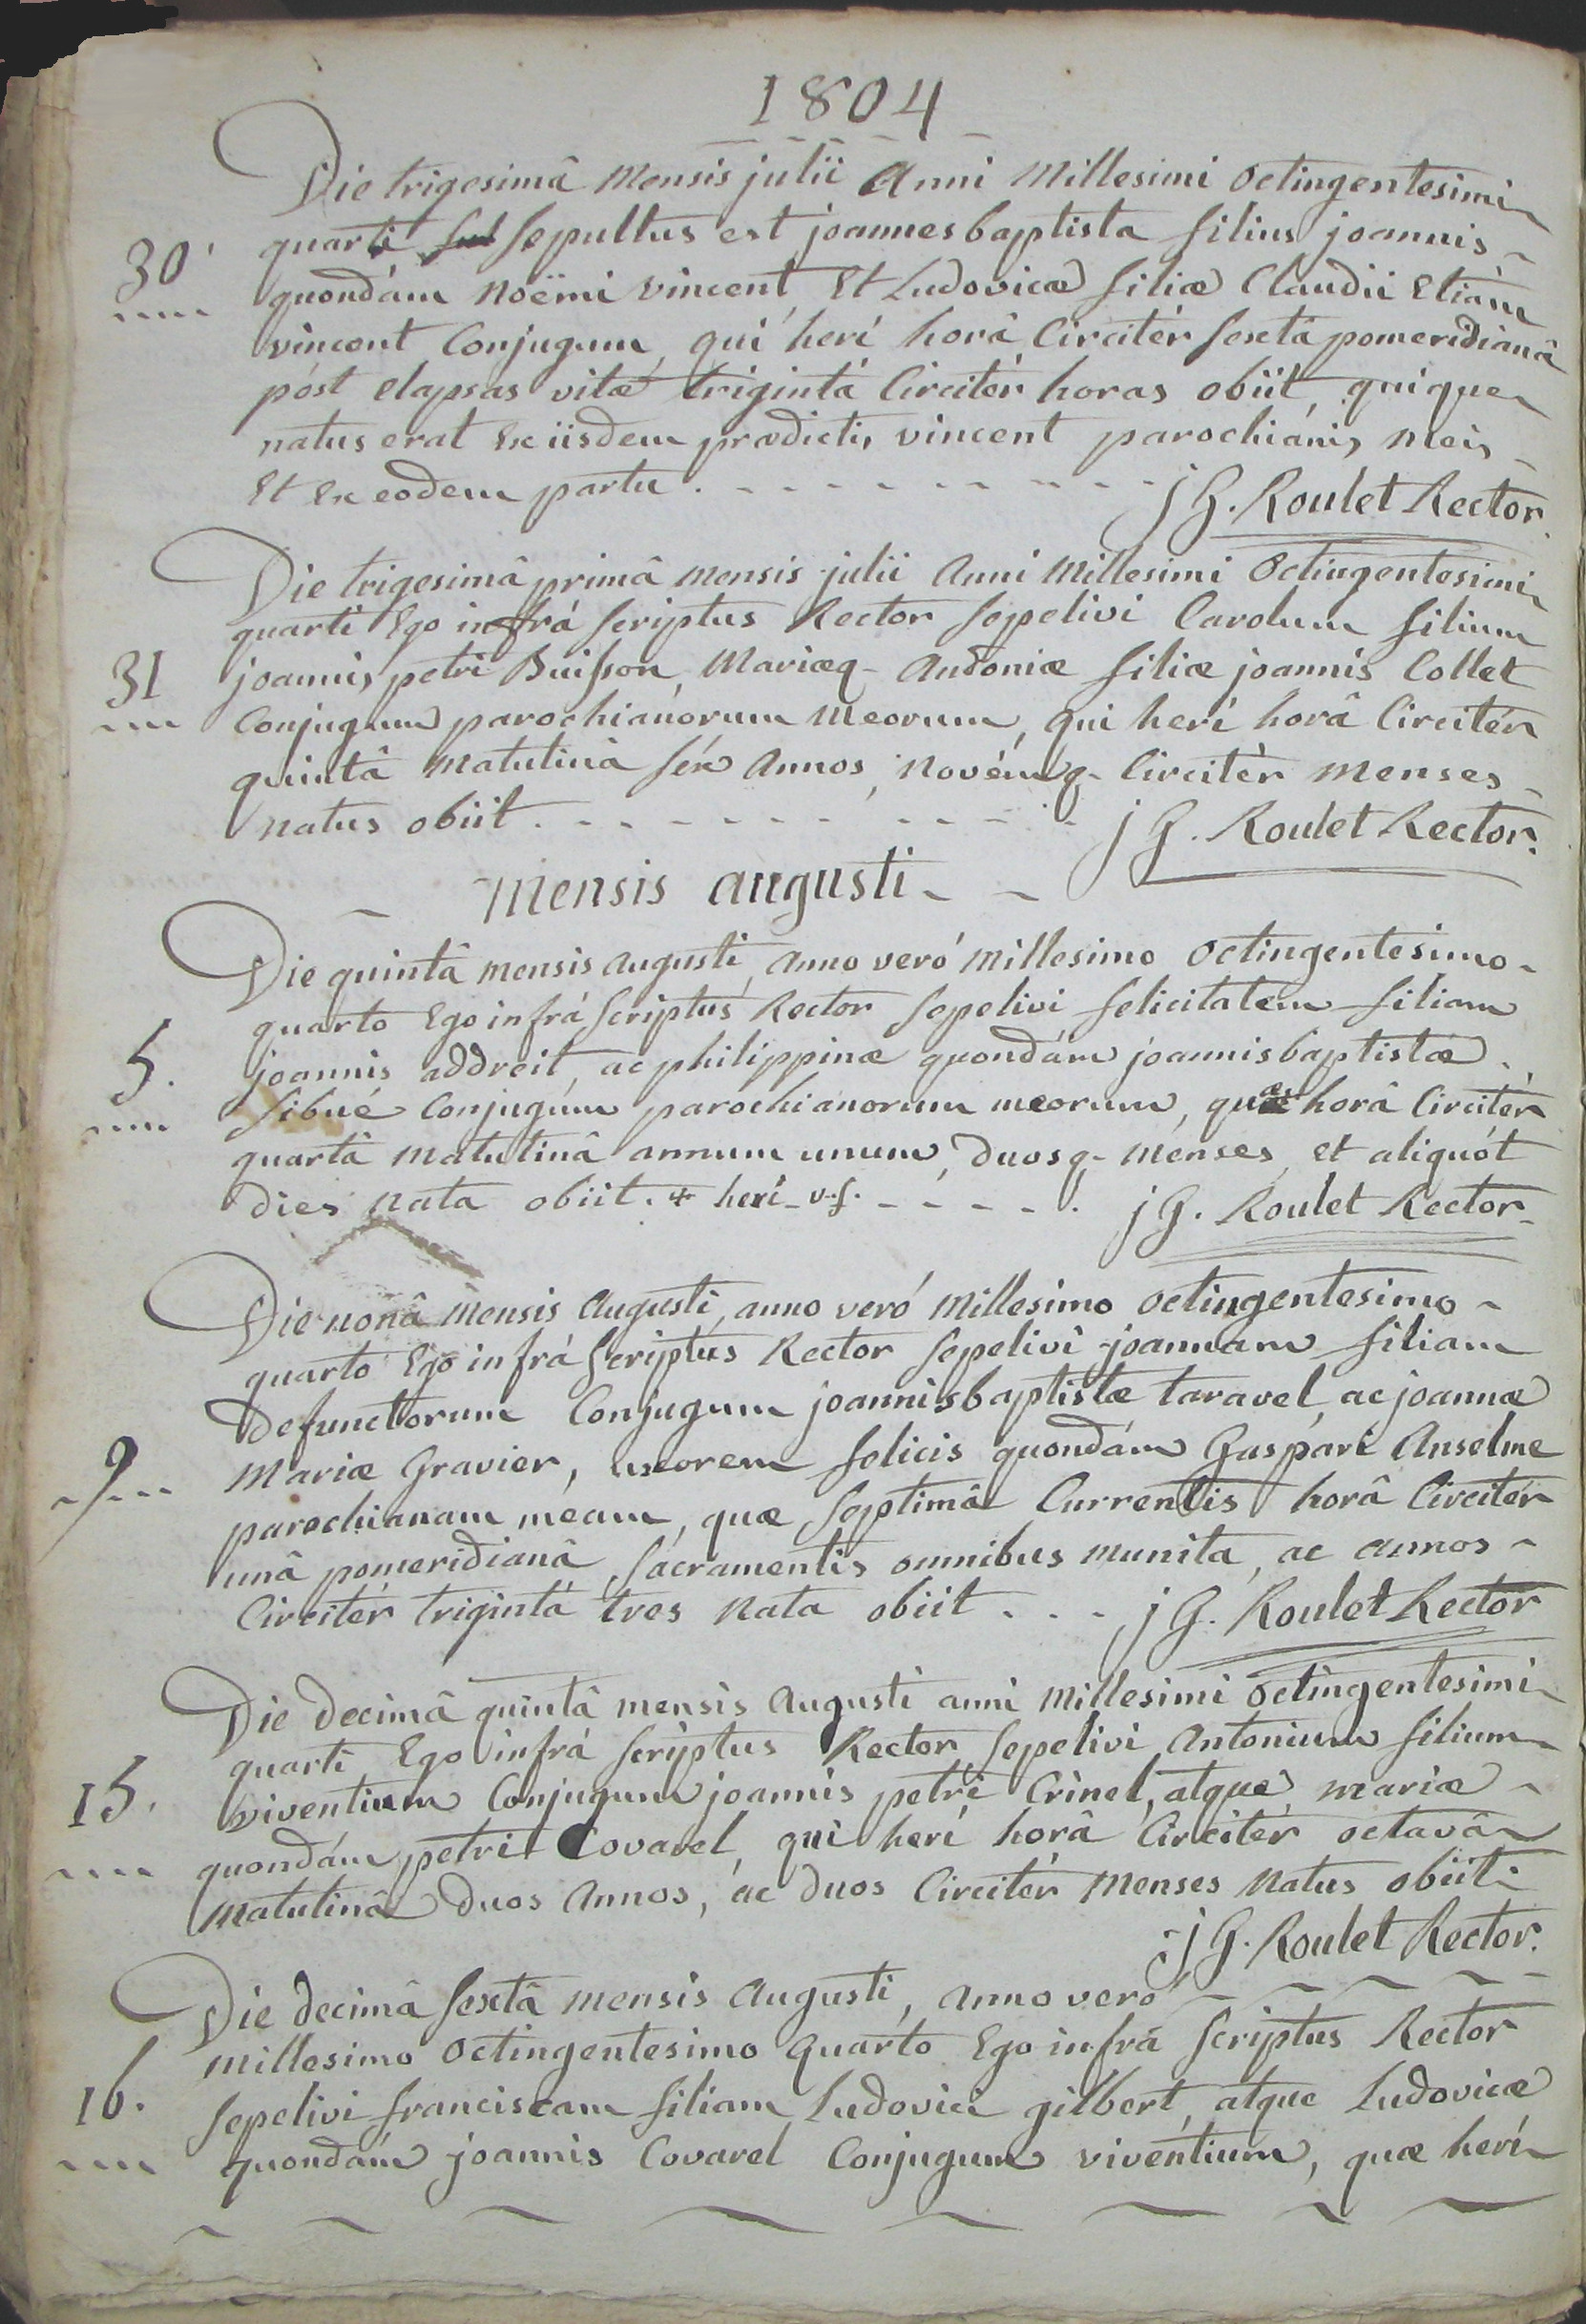 1804
Die trigesimâ mensis julii Anni Millesimi Octingentesimi
30
quarti sepultus est joannesbaptista filius joannis
quondám Noëmi vincent, Et Ludovicæ filiæ Claudii Etiám
vincent Conjugum, qui herí horâ Circitér sextâ pomeridianâ
póst elapsas vitæ trigintá Circitér horas obiit, quique
natus erat Ex iisdem prædictis vincent parochianis meis
Et Ex eodem partu. j G. Roulet Rector.
Die trigesimâ primâ mensis julii Anni Millesimi Octingentesimi
quarti Ego infrá scriptus Rector sepelivi Carolum filium
31
joannis petri Buisson, Mariæq- Andoniæ filiæ joannis Collet
Conjugum parochianorum meorum, qui herí horâ Circitér
quintâ matutinâ séx Annos, novémq- Circitér menses
natus obiit. j G. Roulet Rector.
mensis augusti
Die quintâ mensis augusti, anno veró millesimo octingentesimo
quarto Ego infrá scriptus Rector sepelivi felicitatem filiam
5.
joannis addreit, ac philippinæ quondám joannisbaptistæ
sibué Conjugúm parochianorum meorum, quæ horâ Circitér
quartâ matutinâ annum unum, duosq- menses, et aliquót
dies nata obiit. + herí v.s. j G. Roulet Rector
Die nonâ mensis Augusti, anno veró millesimo octingentesimo
quarto Ego infrá scriptus Rector sepelivi joannam filiam
defunctorum Conjugum joannisbaptistæ taravel, ac joannæ
9
Mariæ Gravier, uxorem felicis quondám Gaspári Anselme
parochianam meam, quæ septimâ Currentis horâ Circitér
unâ pomeridianâ, sacramentis omnibus munita, ac annos
Circitér trigintá tres nata obiit. j G. Roulet Rector
Die decimâ quintâ mensis Augusti anni millesimi octingentesimi
quarti Ego infrá scriptus Rector sepelivi Antonium filium
15.
viventium Conjugum joannis petri Crinel, atque mariæ
quondám petri Covarel, qui herí horâ Circitér octavâ
matutinâ duos Annos, ac duos Circitér menses natus obiit.
j G. Roulet Rector.
Die decimâ sextâ mensis Augusti, anno veró
millesimo octingentesimo quarto Ego infrá scriptus Rector
16.
sepelivi franciscam filiam Ludovici gilbert, atque Ludovicæ
quondám joannis Covarel Conjugum viventium, quæ herí